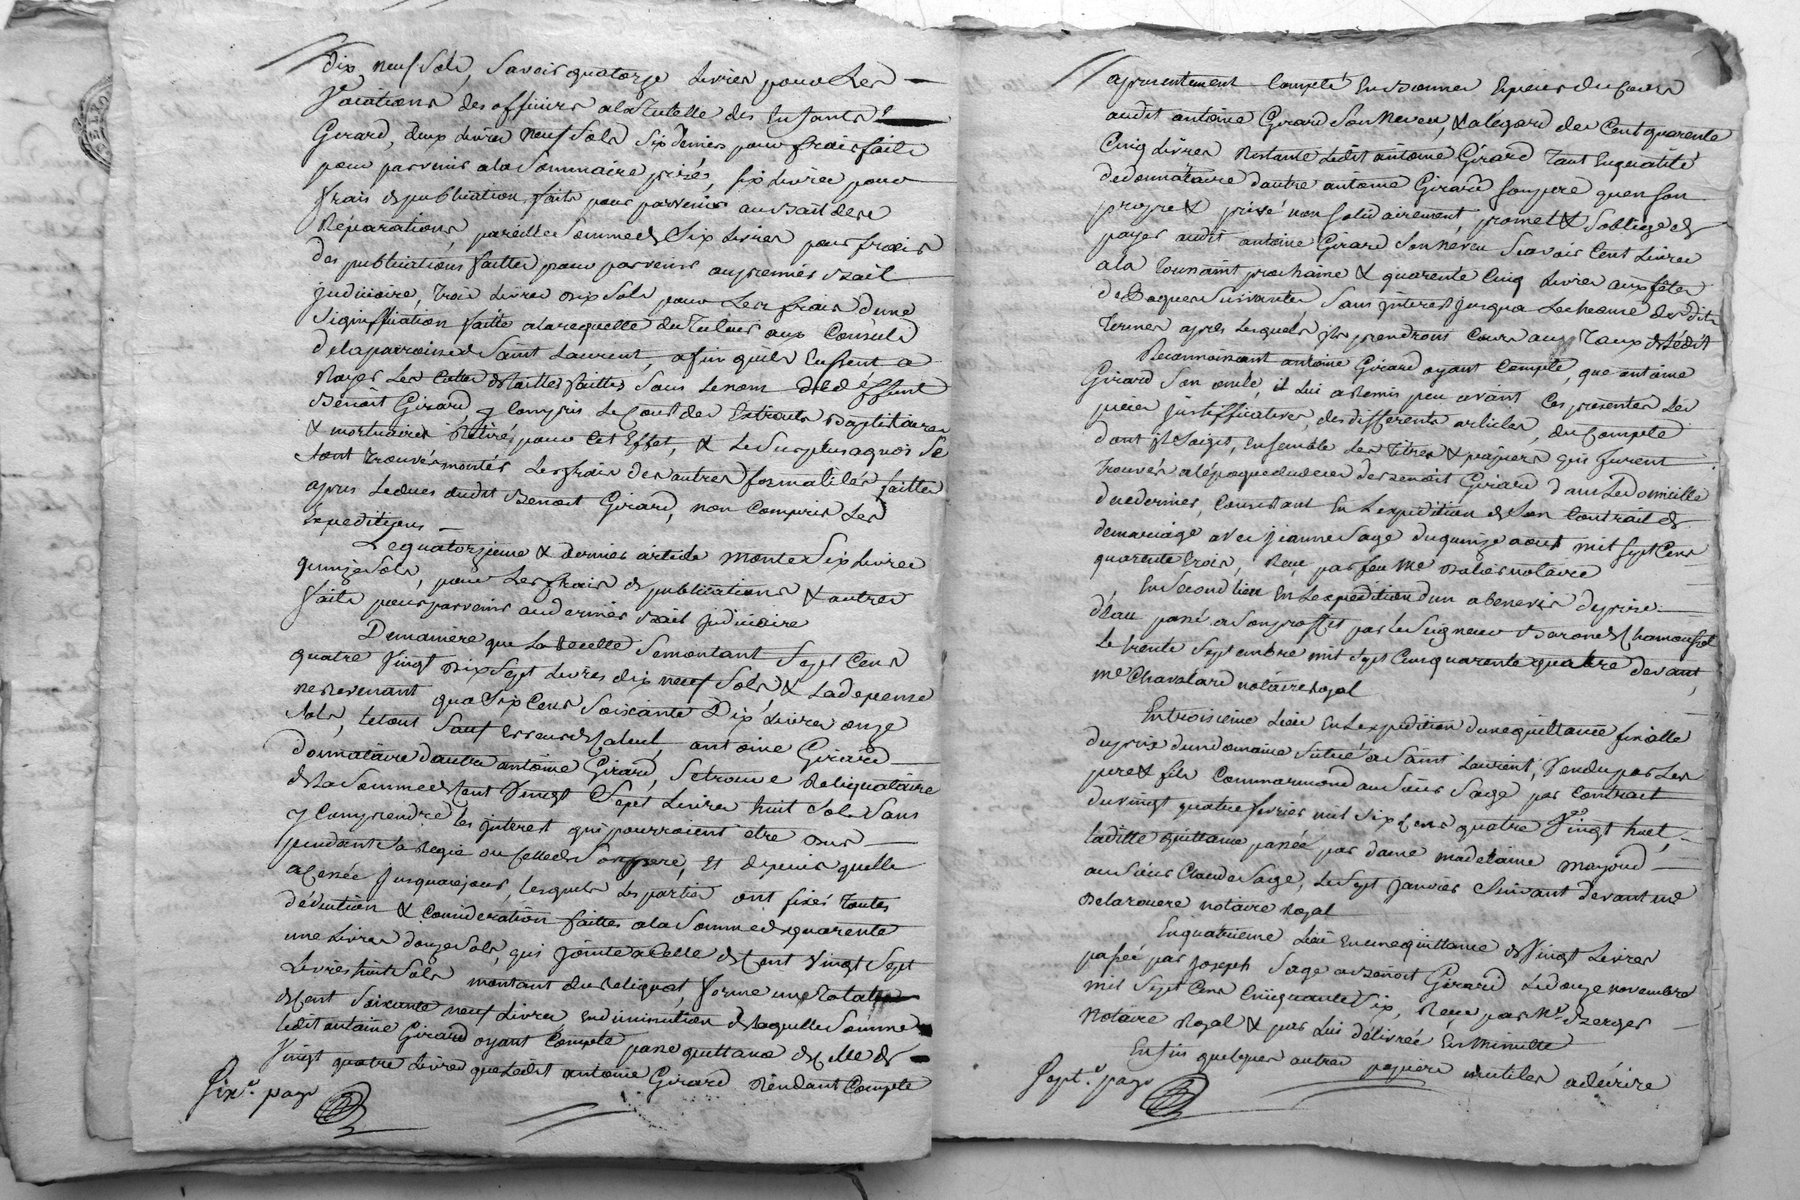 dix neuf sols, savoir quatorze Livres pour Les
Vacations des officiers a la Tutelle des Enfants
Girard, deux Livres neuf sols six deniers pour frais faits
pour parvenir a la Sommaire prisée, six Livres pour
frais de publication faits pour parvenir au Bail de
Réparations, pareille Somme de Six Livres pour frais
des publications faittes pour parvenir au premier Bail
judiciaire, trois Livres dix Sols pour Les frais d'une
Signiffication faitte a la requette du Tuteur aux Consuls
de la parroisse de Saint Laurent, afin quils Eussent a
Rayer Les Cottes de tailles faittes Sous Le nom dud deffunt
Benoit Girard, y Compris Le Cout des Extraits Baptistaires
& mortuaires Retirés pour Cet Effet, & Le Surplus a quoi Se
Sont trouvés montés Les frais des autres formalités faittes
apres Le deces dudit Benoit Girard, non Compris Les
Expeditions
Le quatorzieme & dernier article monte Six Livres
quinze Sols, pour Les frais de publications & autres
faits pour parvenir au dernier Bail judiciaire
De maniere que La Recette Se montant Sept Cens
quatre Vingt dix Sept Livres dix neuf Sols, & La depense
ne Revenant qua Six Cens Soixante Dix Livres onze
Sols, le tout Sauf Erreur de Calcul, antoine Girard
donnataire d'autre antoine Girard, Se trouve Reliquataire
de La Somme de Cent Vingt Sept Livres huit Sols Sans
y Comprendre les jnterest qui pourroient etre dus
pendant Sa Regie ou Celle de Son pere, Et depuis quelle
a Cessé jusqua ce jour, Lesquels Les parties ont fixés toutes
déduction & Consideration faittes a la Somme de quarente
une Livres douze Sols, qui jointe a Celle de Cent Vingt Sept
Livres huit Sols montant du Reliquat, forme une totale
de Cent Soixante neuf Livres, En diminution de Laquelle Somme
Ledit antoine Girard oyant Compte passe quittance de Celle de
Vingt quatre Livres que Ledit antoine Girard Rendant Compte
Six.e page
a presentement Compté En Bonnes Especes du Cours
audit antoine Girard Son Neveu, & a légard des Cent quarente
Cinq Livres Restante Ledit antoine Girard tant En qualité
de donnataire d'autre antoine Girard Son pere qu'en Son
propre & privé non Solidairement, promet & S'oblige de
payer audit antoine Girard Son Neveu Savoir Cent Livres
a La Toussaint prochaine & quarente Cinq Livres aux fêtes
de Paques Suivantes, Sans jnterest jusqua Lecheance desdits
termes apres Lesquels ils prendront Cours aux Taux de Lédit
Reconnoissant antoine Girard oyant Compte, que antoine
Girard Son oncle, il Lui a Remis peu avant Ces presentes Les
pieces justifficatives, des differents articles, du Compte
dont il Sagit, Ensemble Les Titres & papiers qui furent
trouvés a lépoque du deces de Benoit Girard dans Le Domicille
du dernier, Consistant En Lexpedition de Son Contrait de
de mariage avec jeanne Sage du quinze aout mil Sept Cens
quarente trois, Reçu par feu Me notaire
En Second lieu En Lexpedition d'un abenevis de prise
d'eau passé a Son proffit par Le Seigneur Baron de Chamousset
Le trente Septembre mil Sept Cens quarente quatre devant
me Chavalard notaire Royal
En troisieme Lieu En Lexpedition d'une quittance finalle
du prix d'un domaine Situé a Saint Laurent, Vendu par Les
pere & fils Commarmond au Sieur Sage par Contrait
du Vingt quatre fevrier mil Six Cens quatre Vingt huit,
laditte quittance passée par dame madelaine mayoud
au Sieur Claude Sage, Le Sept janvier Suivant devant me
Delarouere notaire Royal
En quatrieme Lieu En une quittance de Vingt Livres
passée par joseph Sage a Benoit Girard Le douze novembre
mil Sept Cens Cinquante Six, Reçue par Me Berger
Notaire Royal & par Lui délivrée En Minutte
Enfin quelques autres papiers inutiles a décrire
Sept.e page